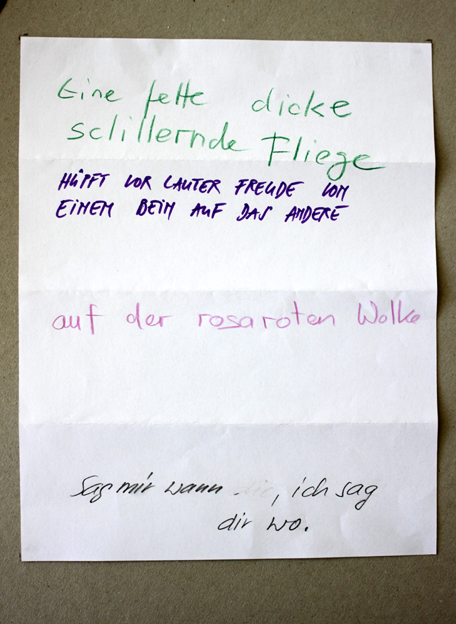 Eine fette dicke
schillernde Fliege
HÜPFT VOR LAUTER FREUDE VOM
EINEM BEIN AUF DAS ANDERE
auf der rosaroten Wolke
Sag mir wann , ich sag
dir wo.